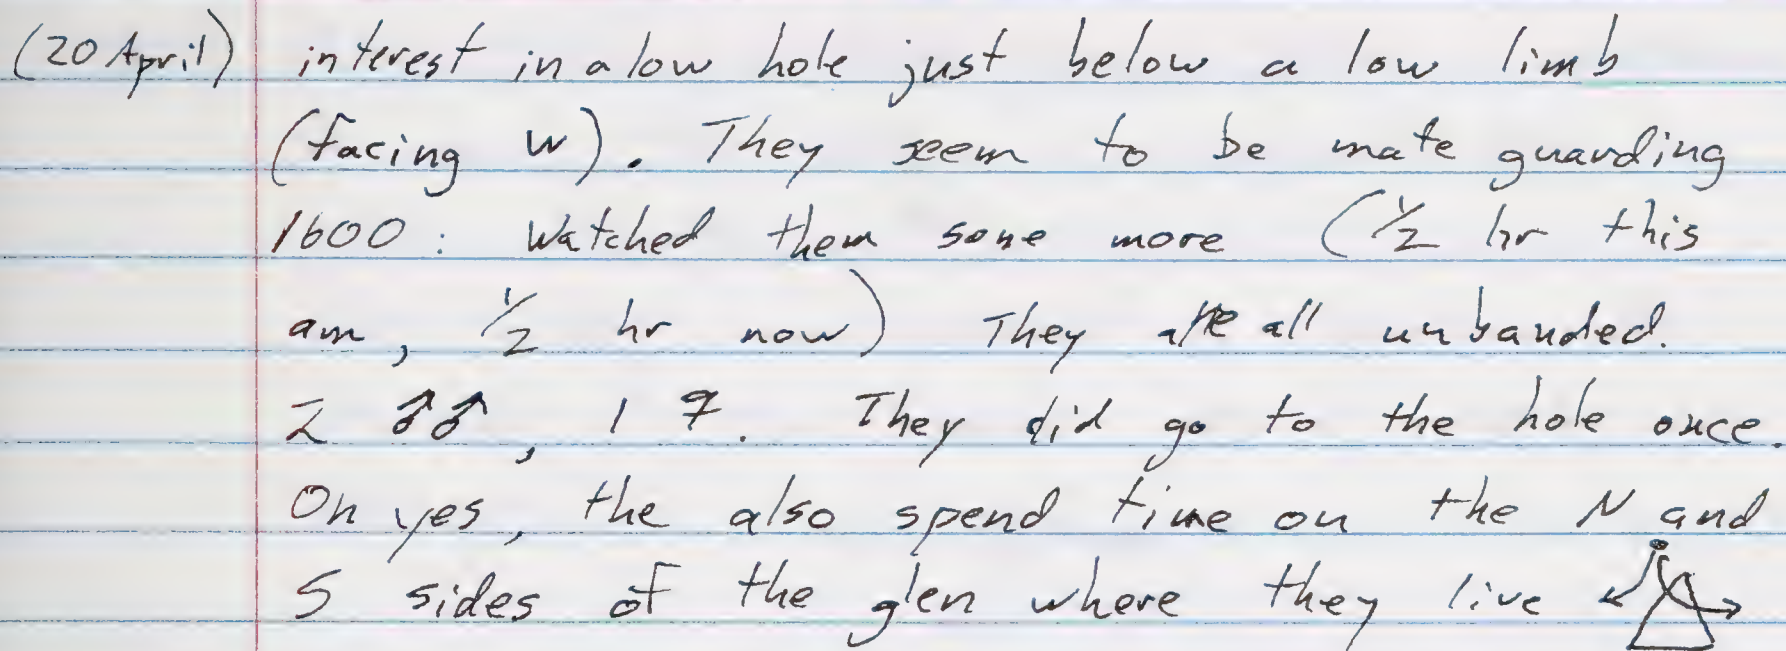 (20 April) interest in a low hole just below a low limb
(facing W). They seem to be mate guarding
1600: Watched them some more (1/2 hr this
am, 1/2 hr now) They are all unbanded.
2 ♂♂, 1 ♀. They did go to the hole once.
Oh yes, the also spend time on the N and
S sides of the glen where they live